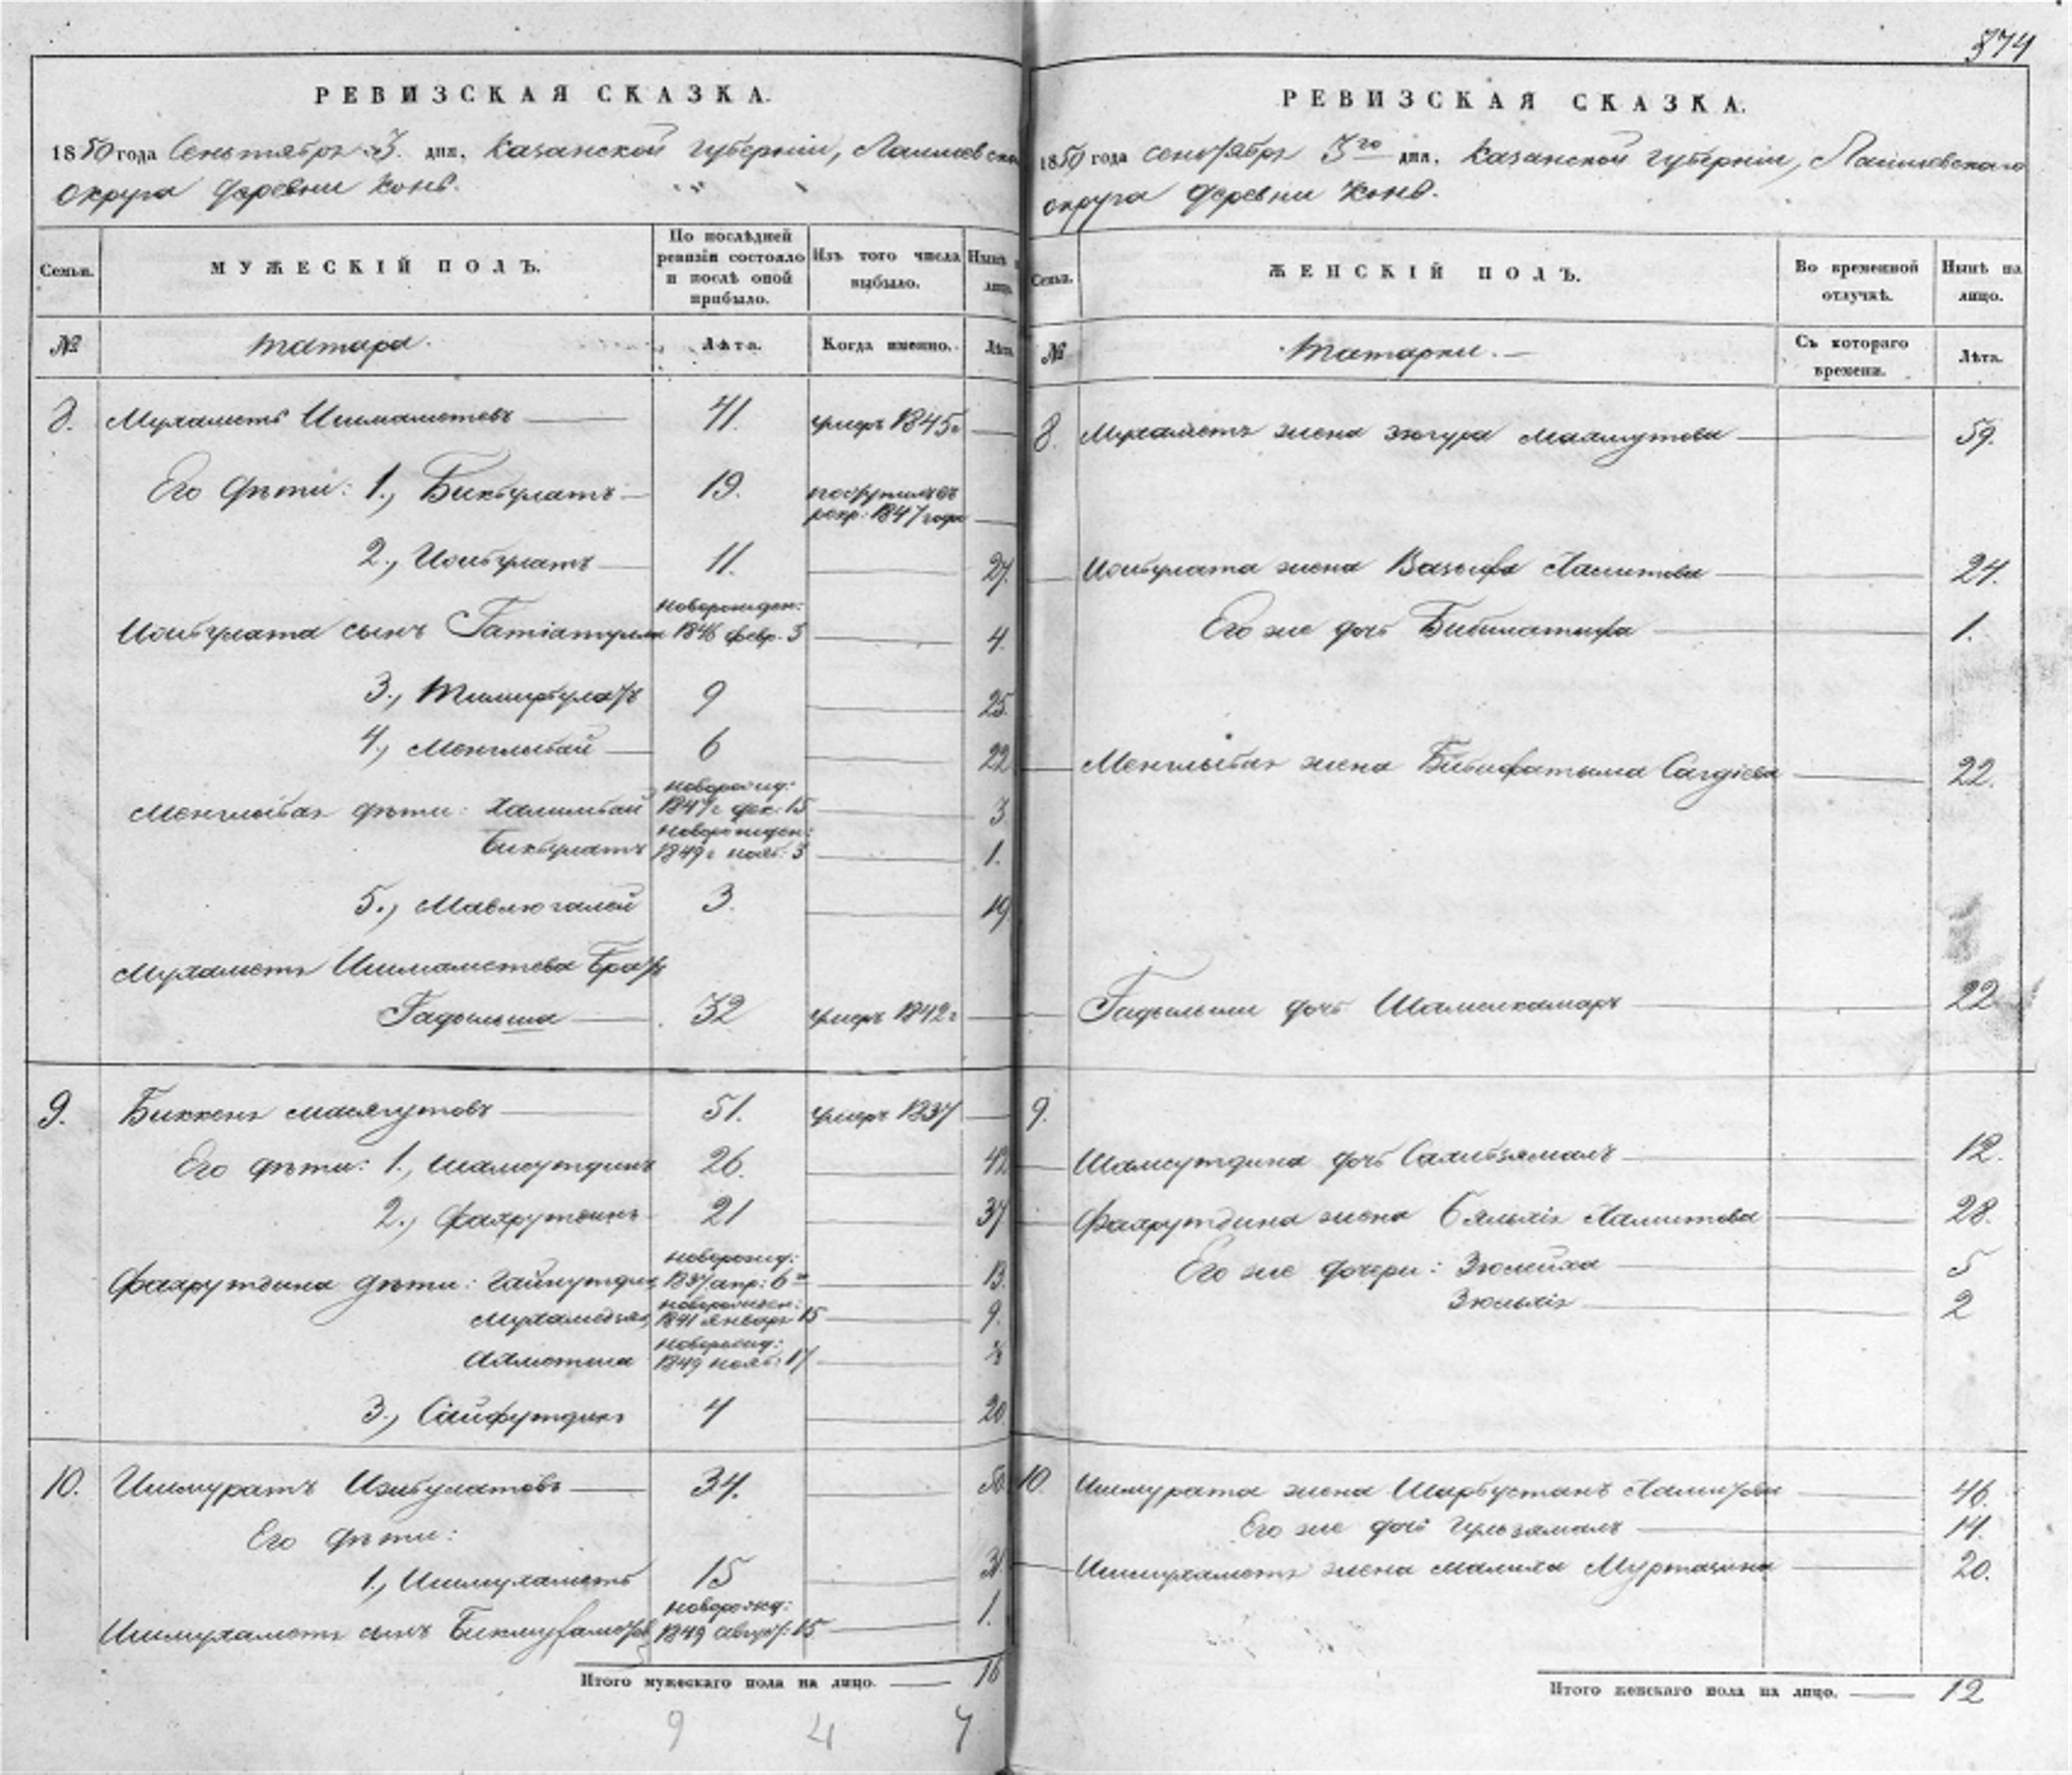 374
РЕВИЗСКАЯ СКАЗКА.
1850 года Сентября 3. дня, Казанской Губерніи, Лаишевска
Округа деревни Конь.
Семьи.
МУЖЕСКІЙ ПОЛЪ.
По послѣдней ревизіи состояло и послѣ оной прибыло.
Изъ того числа выбыло.
Нынѣ
лицо.
№
Татара.
Лѣта.
Когда именно.
Лѣта.
8. Мухаметь Ишмаметевъ 41. умеръ 1845г
Его дѣти: 1., Бикбулатъ 19. поступилъ въ
рекр: 1847 года
2., Ишбулатъ 11. 27.
новорожден:
Ишбулата сынъ Гатіатулла 1846 февр. 3 4.
3., Тимирбулатъ 9 25.
4., Менглыбай 6 22
новорожд:
Менглыбая дѣти: Халилбай 1847г дек. 15 3
новорожден:
Бикбулатъ 1849г нояб: 3 1.
5., Мавлюгалей 3. 19.
Мухаметя Ишмаметева братъ
Гадыльша 32 умеръ 1842г
9. Биккеня Масягутовъ 51. умеръ 1837
Его дѣти: 1., Шамсутдинъ 26. 42
2., Фахрутдинъ 21 37
новорожд:
Фахрутдина дѣти: Гайнутдин 1837 апр: 6 13.
новорожден:
Мухамедзян 1841 январ 15 9.
новорожд:
1849 нояб: 17
3., Сайфутдинъ 4 20
10. Ишмуратъ Ишбулатовъ 34. 50
Его дѣти:
1., Ишмухаметь 15 31
новорожд:
Ишмухаметя сынъ 1849 август: 15 1.
Итого мужескаго пола на лицо. 16
9 4 7
РЕВИЗСКАЯ СКАЗКА.
1850 года сентября 3го дня, Казанской губерніи, Лаишевскаго
округа деревни Конь.
Семьи.
ЖЕНСКІЙ ПОЛЪ.
Во временной отлучкѣ.
Нынѣ на лицо.
№
Татарки.
Съ котораго времени.
Лѣта.
8. Мухаметя жена Зюгура Махмутова 59.
Ишбулата жена Вазифа Хамитова 24.
Его же дочь Бибилатифа 1.
Менглыбая жена Бибифатыма Сагдіева 22.
Гадыльши дочь Шамсикамаръ 22
9.
Шамсутдина дочь Сахибзямалъ 12.
Фахрутдина жена Хамитова 28.
Его же дочери: Зюлейха 5
2
10. Ишмурата жена Шарбустанъ Хамитова 46.
Его же дочь Гульзямалъ 14.
Ишмухаметя жена Малиха Муртазина 20.
Итого женскаго пола на лицо. 12